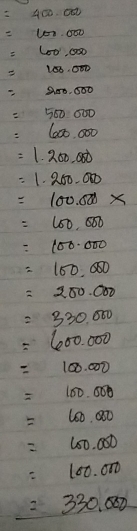 = 400.000
= 100.000
= 600.000
= 100.000
= 200.000
= 500.000
= 600.000
= 1.200.000
= 1.200.000
= 100.000 ×
= 100.000
= 100.000
= 150.000
= 200.000
= 330.000
= 600.000
= 100.000
= 100.000
= 100.000
= 100.000
= 100.000
= 330.000